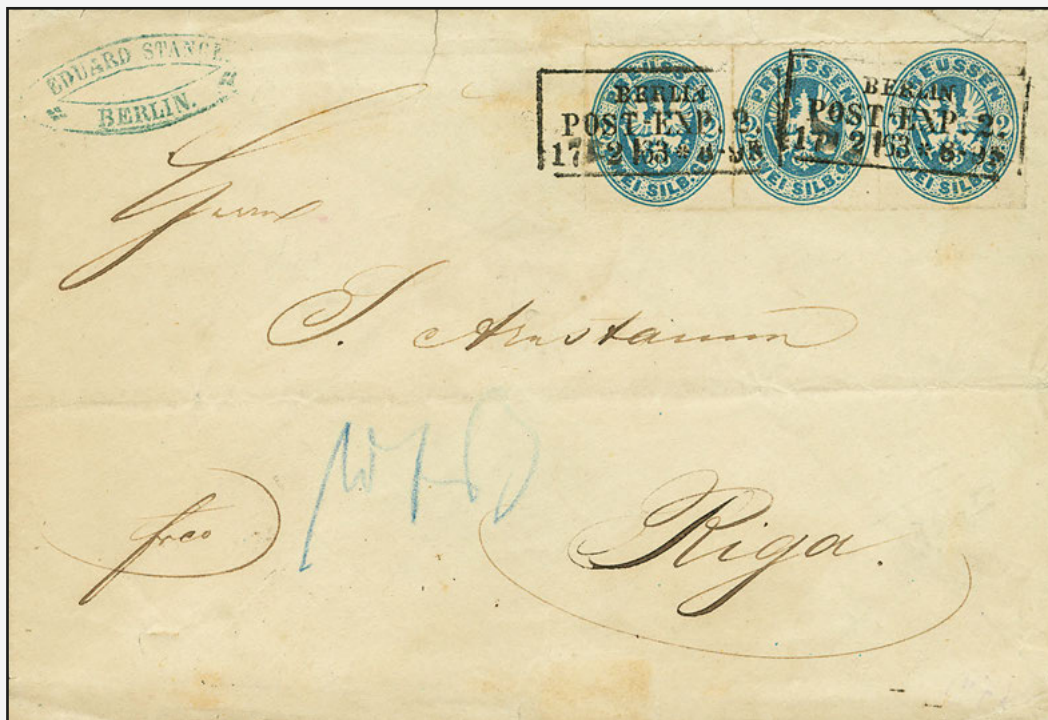 EDUARD STANGE.
BERLIN.
PREUSSEN
ZWEI SILB.GR.
PREUSSEN
ZWEI SILB.GR.
PREUSSEN
2
ZWEI SILB.GR.
BERLIN
POST-EXP. 2.
17 2 63 * 8-9
BERLIN
POST-EXP. 2.
17 2 63 * 8-9
Herrn
J. Arnstamm
frco
Riga.